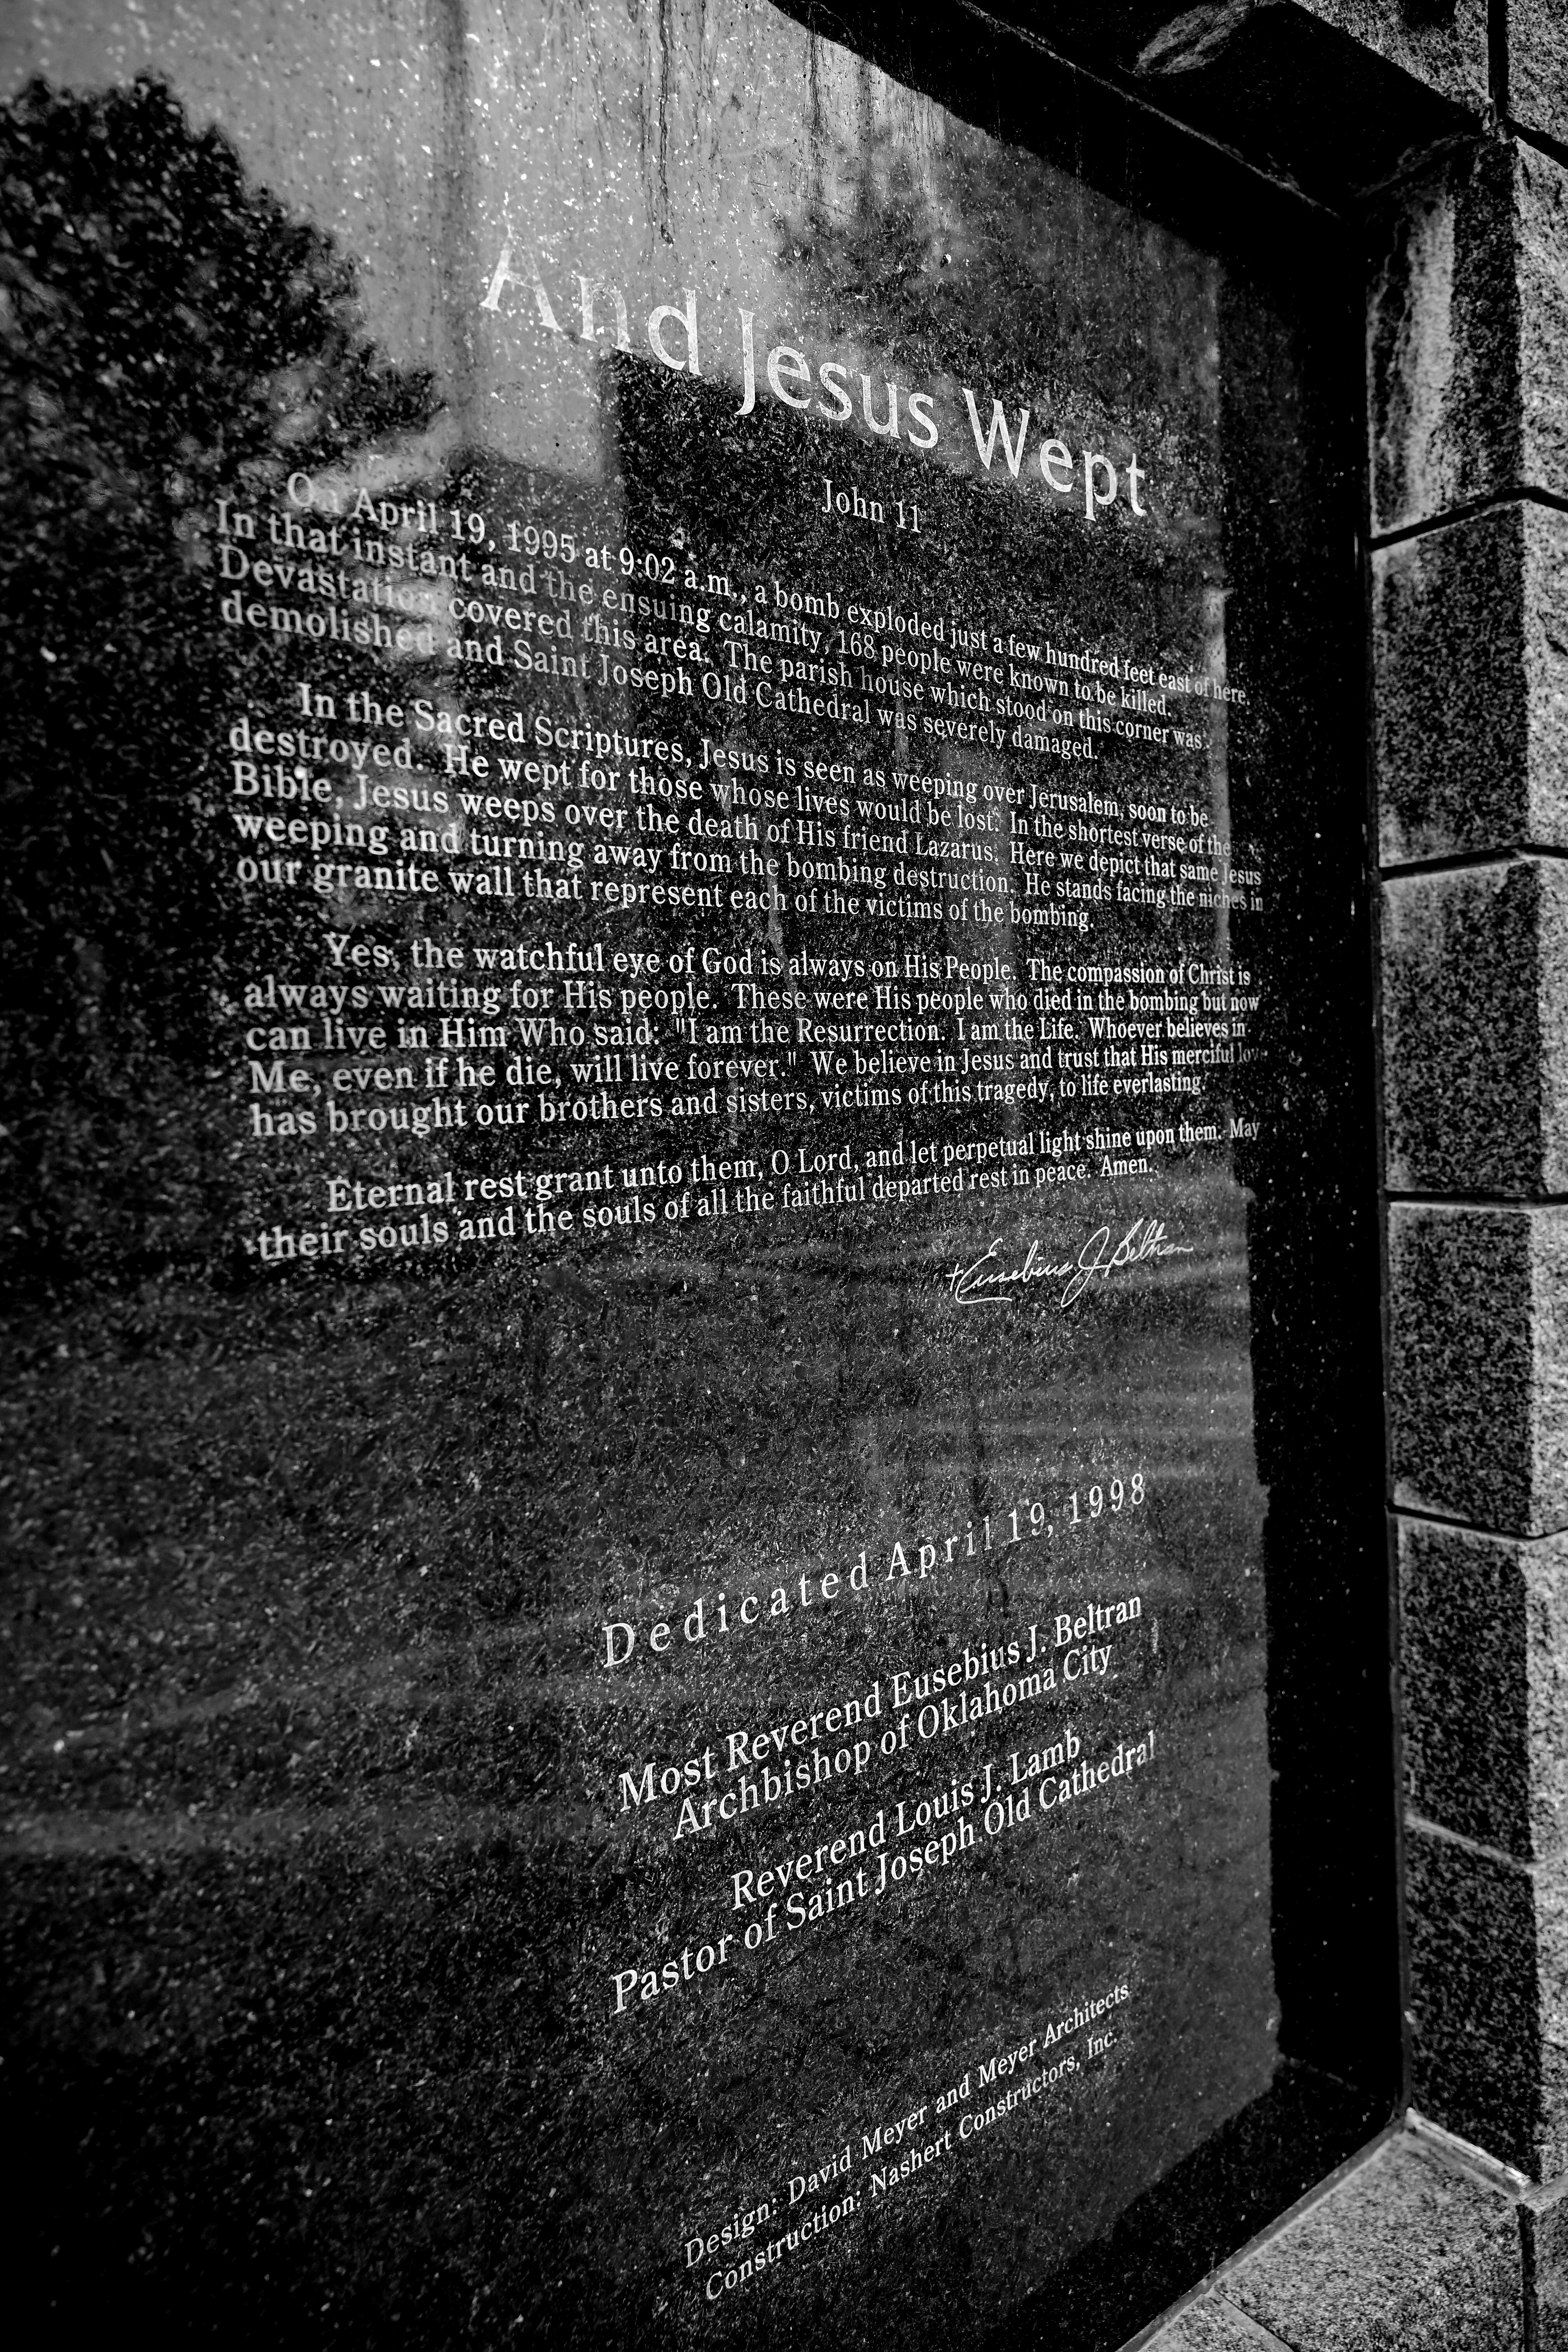 And Jesus Wept
John 11
On April 19, 1995 at 9:02 a.m., a bomb exploded just a few hundred feet east of here.
In that instant and the ensuing calamity, 168 people were known to be killed.
Devastation covered this area. The parish house which stood on this corner was
demolished and Saint Joseph Old Cathedral was severely damaged.
In the Sacred Scriptures, Jesus is seen as weeping over Jerusalem, soon to be
destroyed. He wept for those whose lives would be lost. In the shortest verse of the
Bible, Jesus weeps over the death of His friend Lazarus. Here we depict that same Jesus
weeping and turning away from the bombing destruction. He stands facing the niches in
our granite wall that represent each of the victims of the bombing.
Yes, the watchful eye of God is always on His People. The compassion of Christ is
always waiting for His people. These were His people who died in the bombing but now
can live in Him Who said: "I am the Resurrection. I am the Life. Whoever believes in
Me, even if he die, will live forever." We believe in Jesus and trust that His merciful love
has brought our brothers and sisters, victims of this tragedy, to life everlasting.
Eternal rest grant unto them, O Lord, and let perpetual light shine upon them. May
their souls and the souls of all the faithful departed rest in peace. Amen.
+Eusebius J Beltran
Dedicated April 19, 1998
Most Reverend Eusebius J. Beltran
Archbishop of Oklahoma City
Reverend Louis J. Lamb
Pastor of Saint Joseph Old Cathedral
Design: David Meyer and Meyer Architects
Construction: Nashert Constructors, Inc.